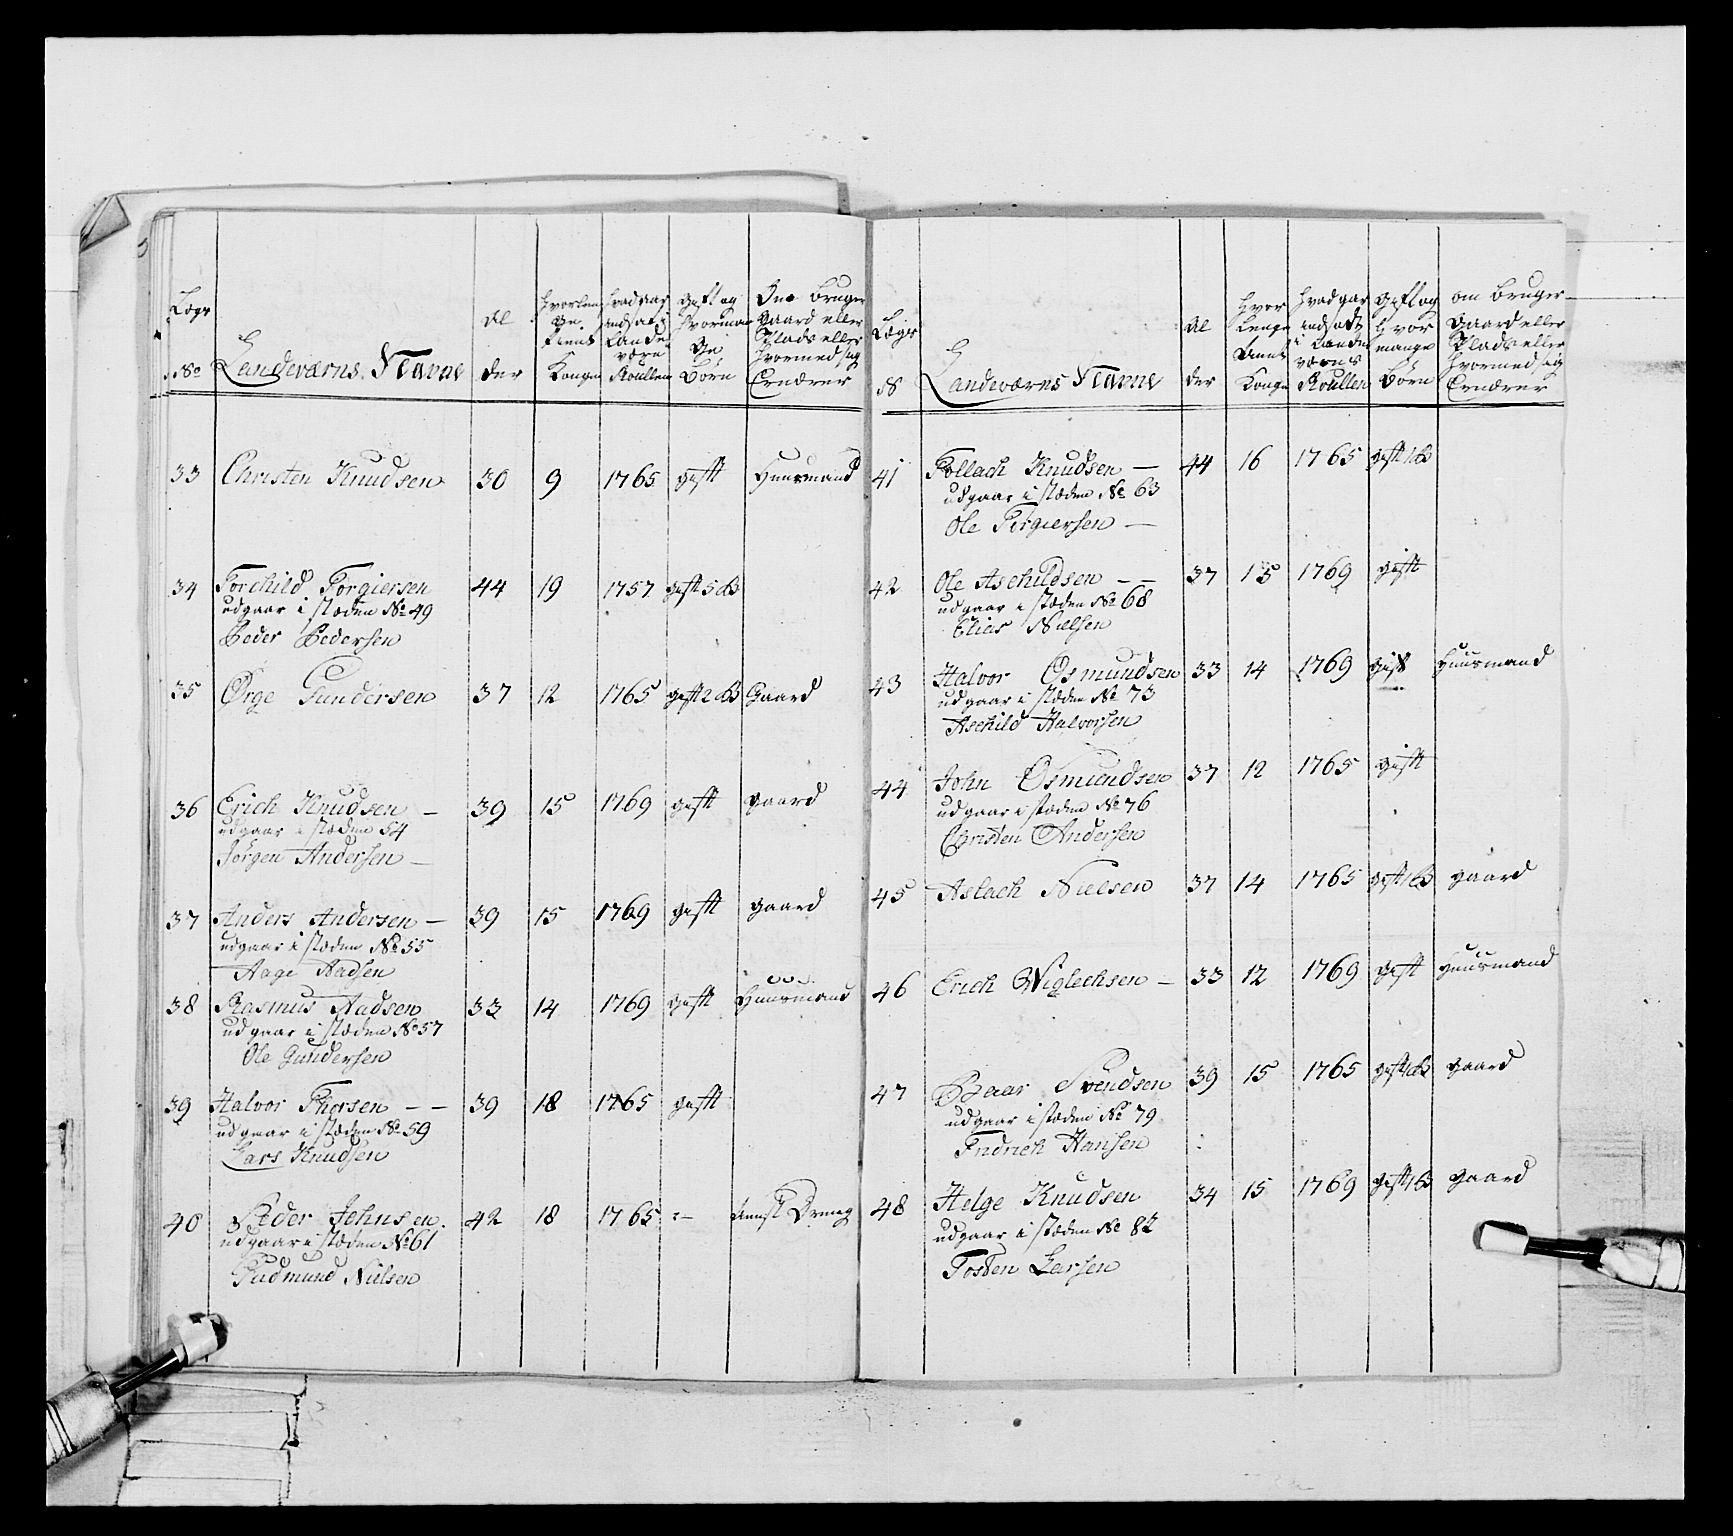 Lægs No
Landeværns Nafne
Al der
hvorlenge tient Kongen
hvad aar indsat i Landeværn Roullen
gift og hvormange Børn
Om bruger Gaard eller Plads eller hvormed sig Ernærer
33 Christen Knudsen 30 9 1765 gift Huusmand
34 Torchild Torgiersen 44 19 1757 gift 5 B
udgaar i stæden No 49
Peder Pedersen
35 Ørge Gundersen 37 12 1765 gift 2 B Gaard
36 Erich Knudsen — 39 15 1769 gift gaard
udgaar i stæden 54
Jørgen Andersen —
37 Anders Andersen — 39 15 1769 gift gaard
udgaar i stæden No 55
Aage Aadsen
38 Rasmus Aadsen 33 14 1769 gift Huusmand
udgaar i stæden No 57
Ole Gundersen
39 Halvor Thorsen — — 39 18 1765 gift
udgaar i stæden No 59
Lars Knudsen
40 Peder Johnsen 42 18 1765 — tienst Dreng
udgaar i stæden No 61
Gudmund Nielsen
Lægs N
Landeværns Nafne
Al der
hvor lenge tient Konge
hvad aar indsadt i Lande værns Roullen
gift og hvor mange Børn
om bruger Gaard eller Plads eller hvormed sig Ernærer
41 Follach Knudsen — 44 16 1765 gift 1 B
udgaar i stæden No 63
Ole Torgiersen —
42 Ole Aschildsen — — 37 15 1769 gift
udgaar i stæden No 68
Elias Nielsen
43 Halvor Osmundsen 33 14 1769 gift Huusmand
udgaar i stæden No 73
Aschild Halvorsen
44 John Osmundsen 37 12 1765 gift
udgaar i stæden No 76
Christen Andersen
45 Aslach Nielsen 37 14 1765 gift 1 B gaard
46 Erich Wiglechsen — 33 12 1769 gift Huusmand
47 Baar Svendsen 39 15 1765 gift 1 B gaard
udgaar i stæden No 79
Fridrich Hansen
48 Helge Knudsen 34 15 1769 gift 1 B gaard
udgaar i stæden No 82
Tosten Larsen